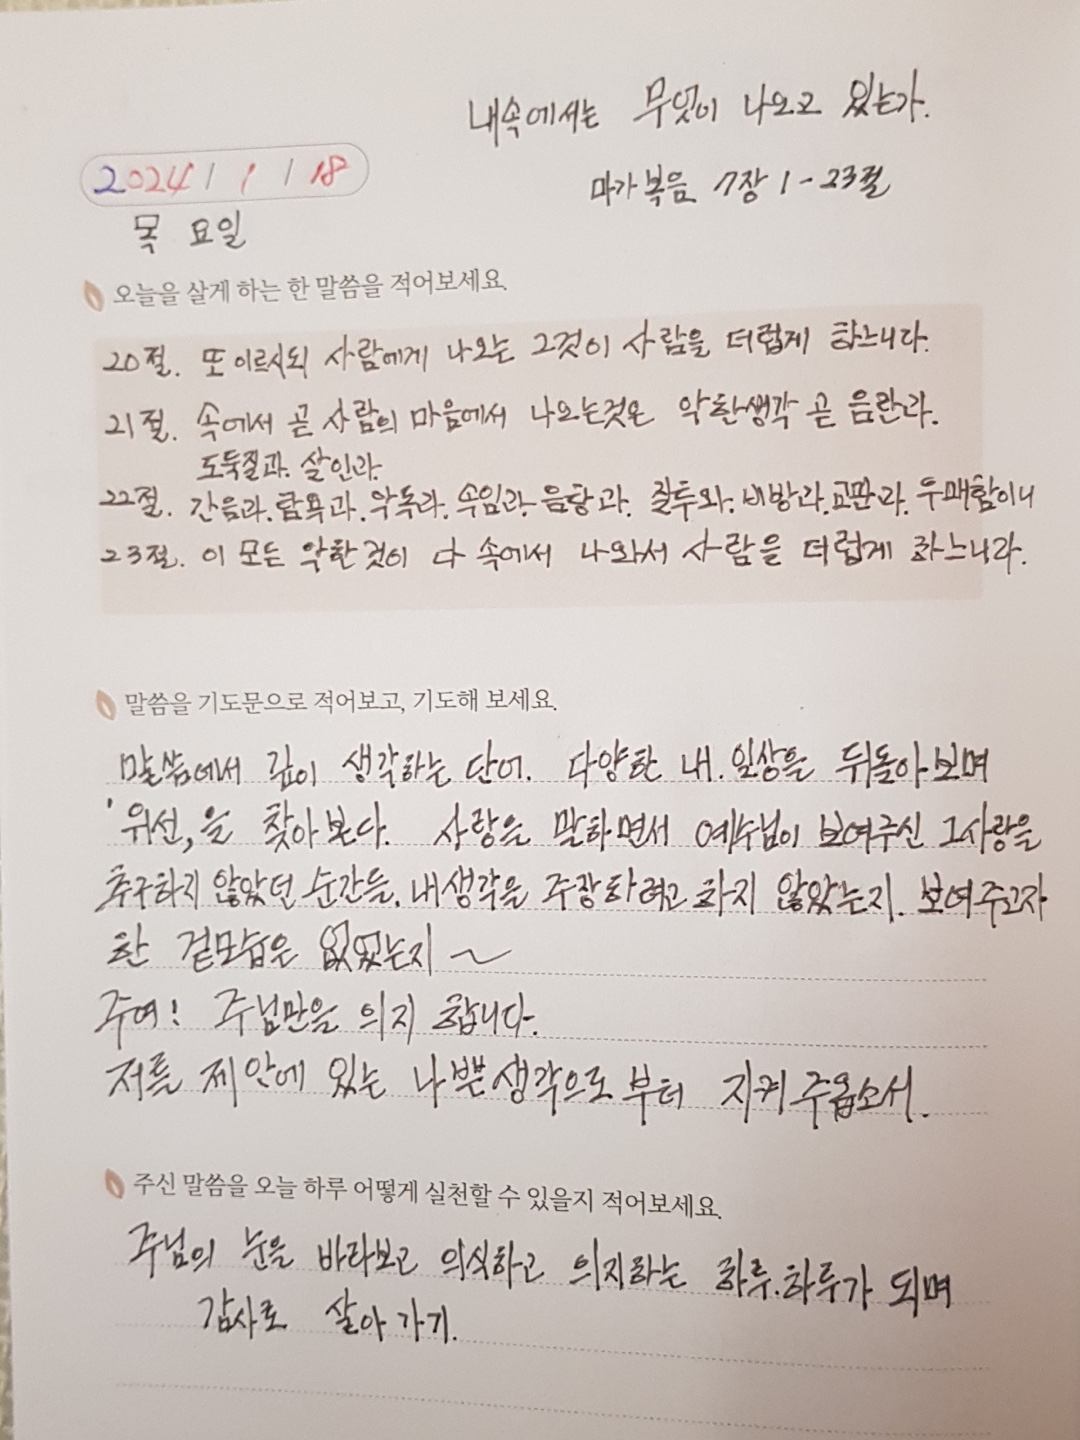 내속에서는 무엇이 나오고 있는가.
2024 / 1 / 18
마가복음 7장 1-23절
목요일
오늘을 살게 하는 한 말씀을 적어보세요.
20절. 또 이르시되 사람에게 나오는 그것이 사람을 더럽게 하느니라.
21절. 속에서 곧 사람의 마음에서 나오는것은 악한생각 곧 음란과.
도둑질과. 살인과.
22절. 간음과. 탐욕과. 악독과. 속임과. 음탕과. 질투와. 비방과. 교만과. 우매함이니
23절. 이 모든 악한 것이 다 속에서 나와서 사람을 더럽게 하느니라.
말씀을 기도문으로 적어보고, 기도해 보세요.
말씀에서 깊이 생각하는 단어. 다양한 내. 일상을 뒤돌아보며
'위선,을 찾아본다. 사랑을 말하면서 예수님이 보여주신 그사랑을
추구하지 않았던 순간들. 내생각을 주장하려고 하지 않았는지. 보여주고자
한 겉모습은 없었는지 ~
주여! 주님만을 의지 합니다.
저를 제안에 있는 나쁜생각으로 부터 지켜주옵소서.
주신 말씀을 오늘 하루 어떻게 실천할 수 있을지 적어보세요.
주님의 눈을 바라보고 의식하고 의지하는 하루.하루가 되며
감사로 살아가기.